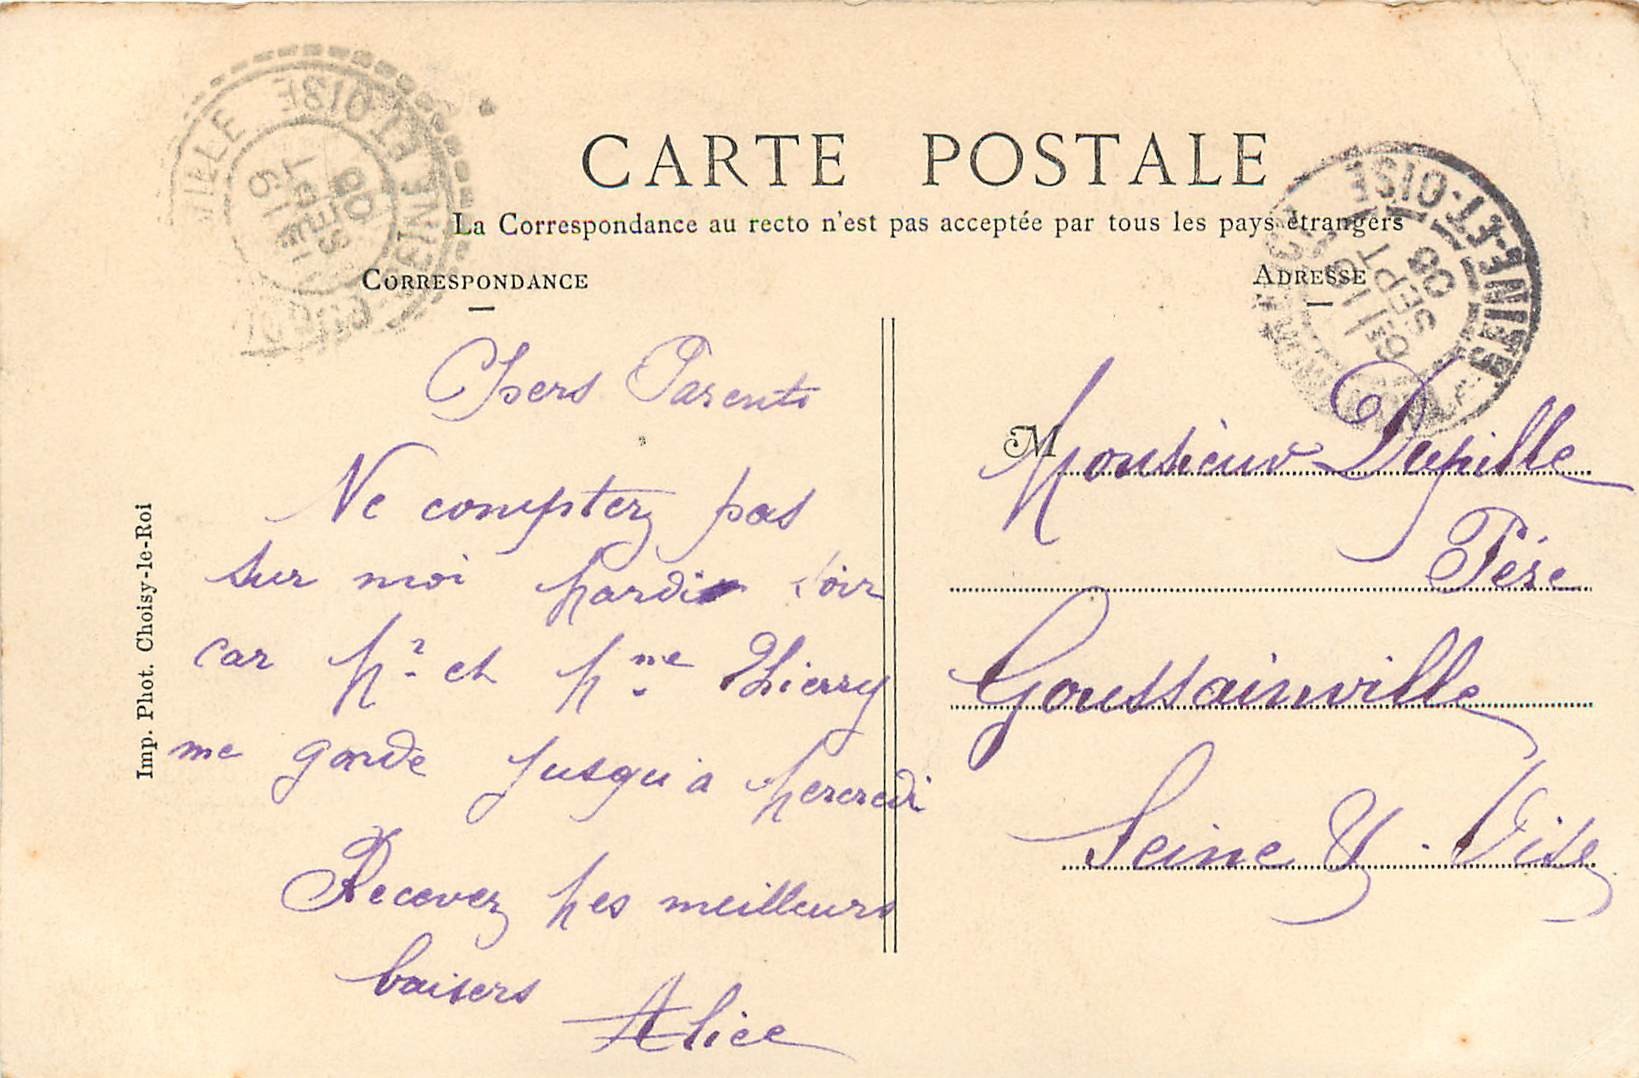 CARTE POSTALE
La Correspondance au recto n'est pas acceptée par tous les pays étrangers
CORRESPONDANCE
ADRESSE
Chers Parents
Ne comptez pas
sur moi Mardi soir
car Mr et Mme Thierry
me garde jusqu'à Mercredi
Recevez mes meilleurs
baisers
Alice
M
Monsieur Dupille
Père
Goussainville
Seine & Oise
Imp. Phot. Choisy-le-Roi
SEINE ET OISE
SEPT
08
SEINE-ET-OISE
SEPT
08